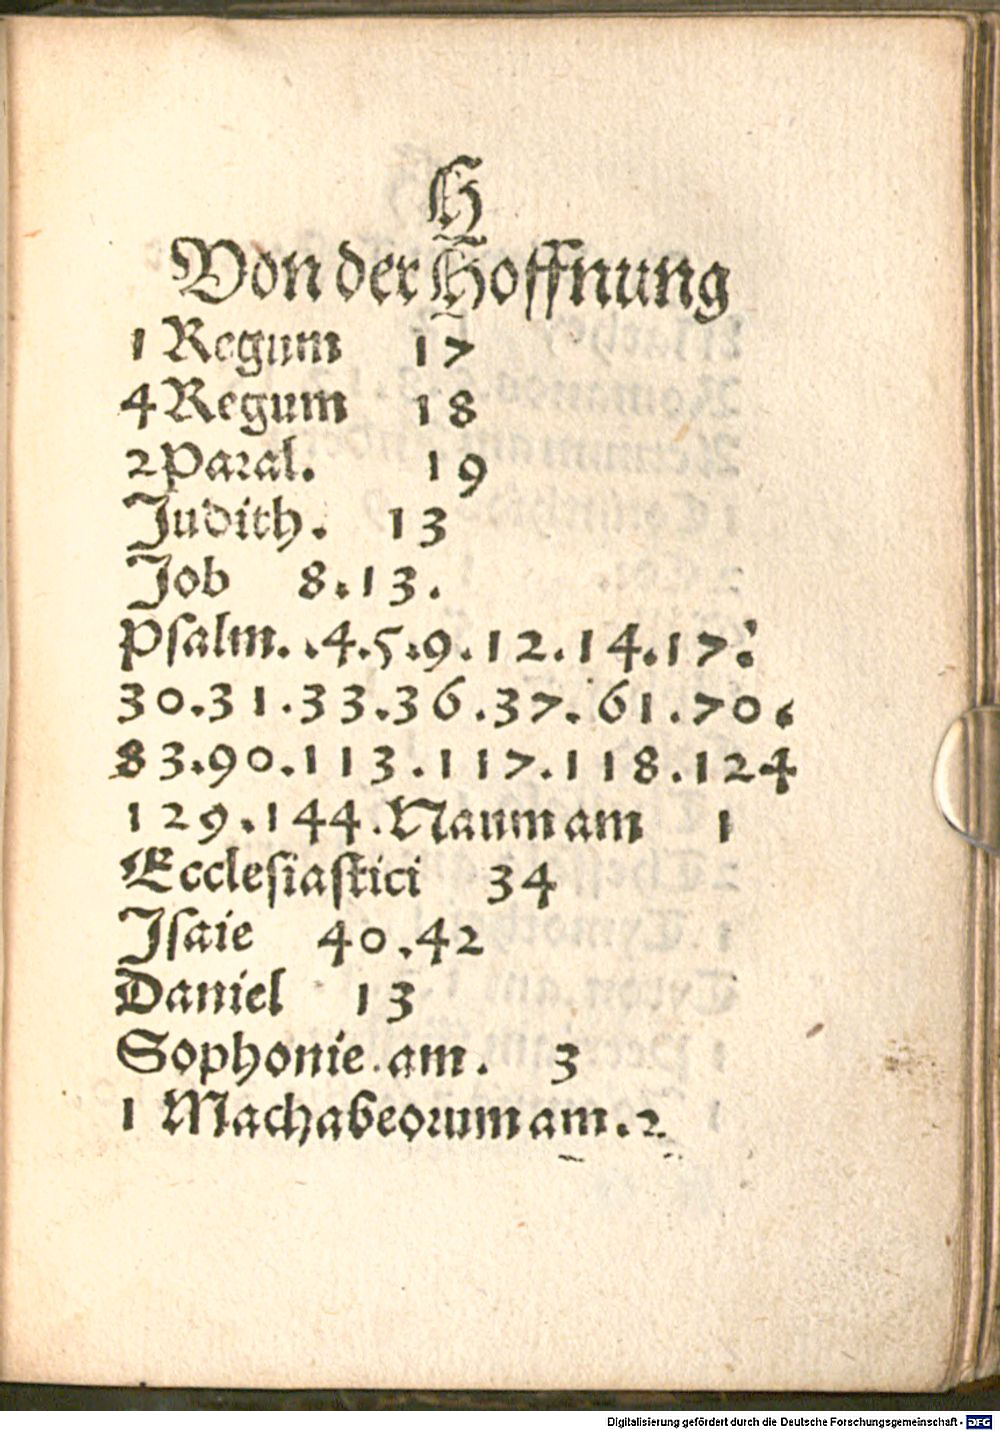 H
Von der Hoffnung
1 Regum 17
4 Regum 18
2 Paral. 19
Judith. 13
Job 8.13.
Psalm. .4.5.9.12.14.17.
30.31.33.36.37.61.70.
83.90.113.117.118.124
129.144. Naum am 1
Ecclesiastici 34
Isaie 40.42
Daniel 13
Sophonie am. 3
1 Machabeorum am. 2
Digitalisierung gefördert durch die Deutsche Forschungsgemeinschaft - DFG